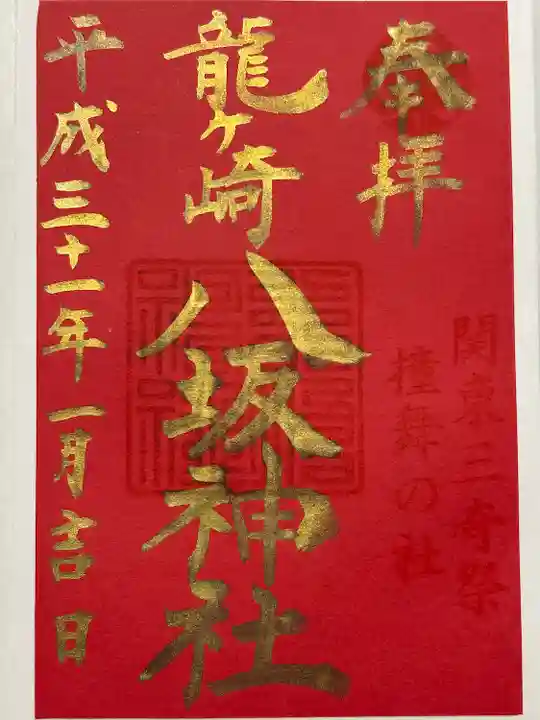 奉拝
関東三奇祭
撞舞の社
龍ヶ崎
八坂神社
平成三十一年一月吉日